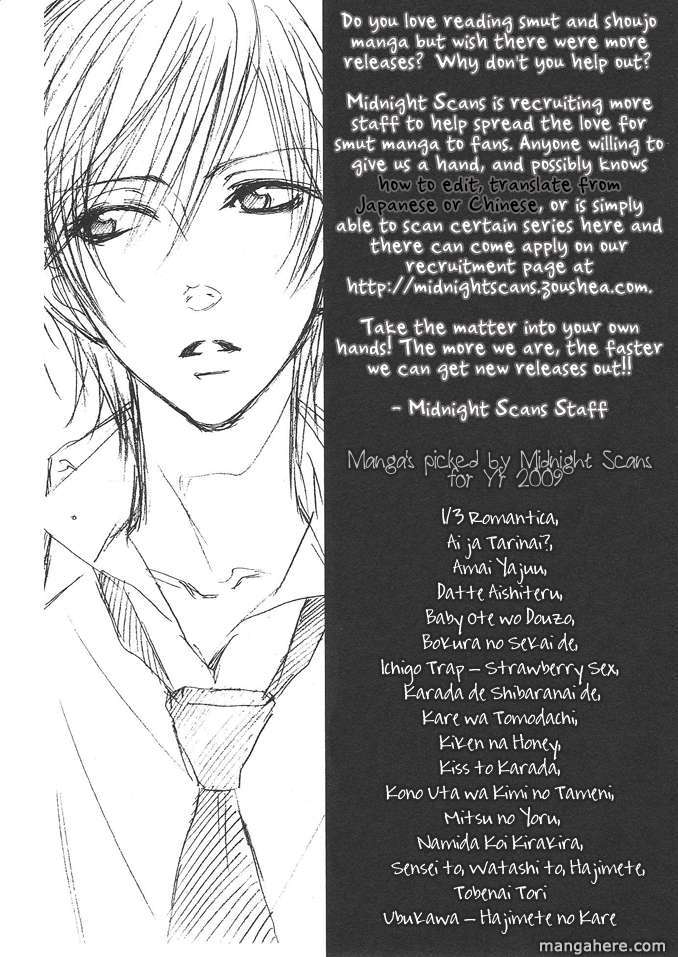 Do you love reading smut and shoujo
manga but wish there were more
releases? Why don't you help out?
Midnight Scans is recruiting more
staff to help spread the love for
smut manga to fans. Anyone willing to
give us a hand, and possibly knows
how to edit, translate from
Japanese or Chinese, or is simply
able to scan certain series here and
there can come apply on our
recruitment page at
http://midnightscans.zoushea.com.
Take the matter into your own
hands! The more we are, the faster
we can get new releases out!!
- Midnight Scans Staff
Manga's picked by Midnight Scans
for Yr 2009
1/3 Romantica,
Ai ja Tarinai?,
Amai Yajuu,
Datte Aishiteru,
Baby Ote wo Douzo,
Bokura no Sekai de,
Ichigo Trap - Strawberry Sex,
Karada de Shibaranai de,
Kare wa Tomodachi,
Kiken na Honey,
Kiss to Karada,
Kono Uta wa Kimi no Tameni,
Mitsu no Yoru,
Namida Koi Kirakira,
Sensei to, Watashi to, Hajimete,
Tobenai Tori
Ubukawa - Hajimete no Kare
mangahere.com